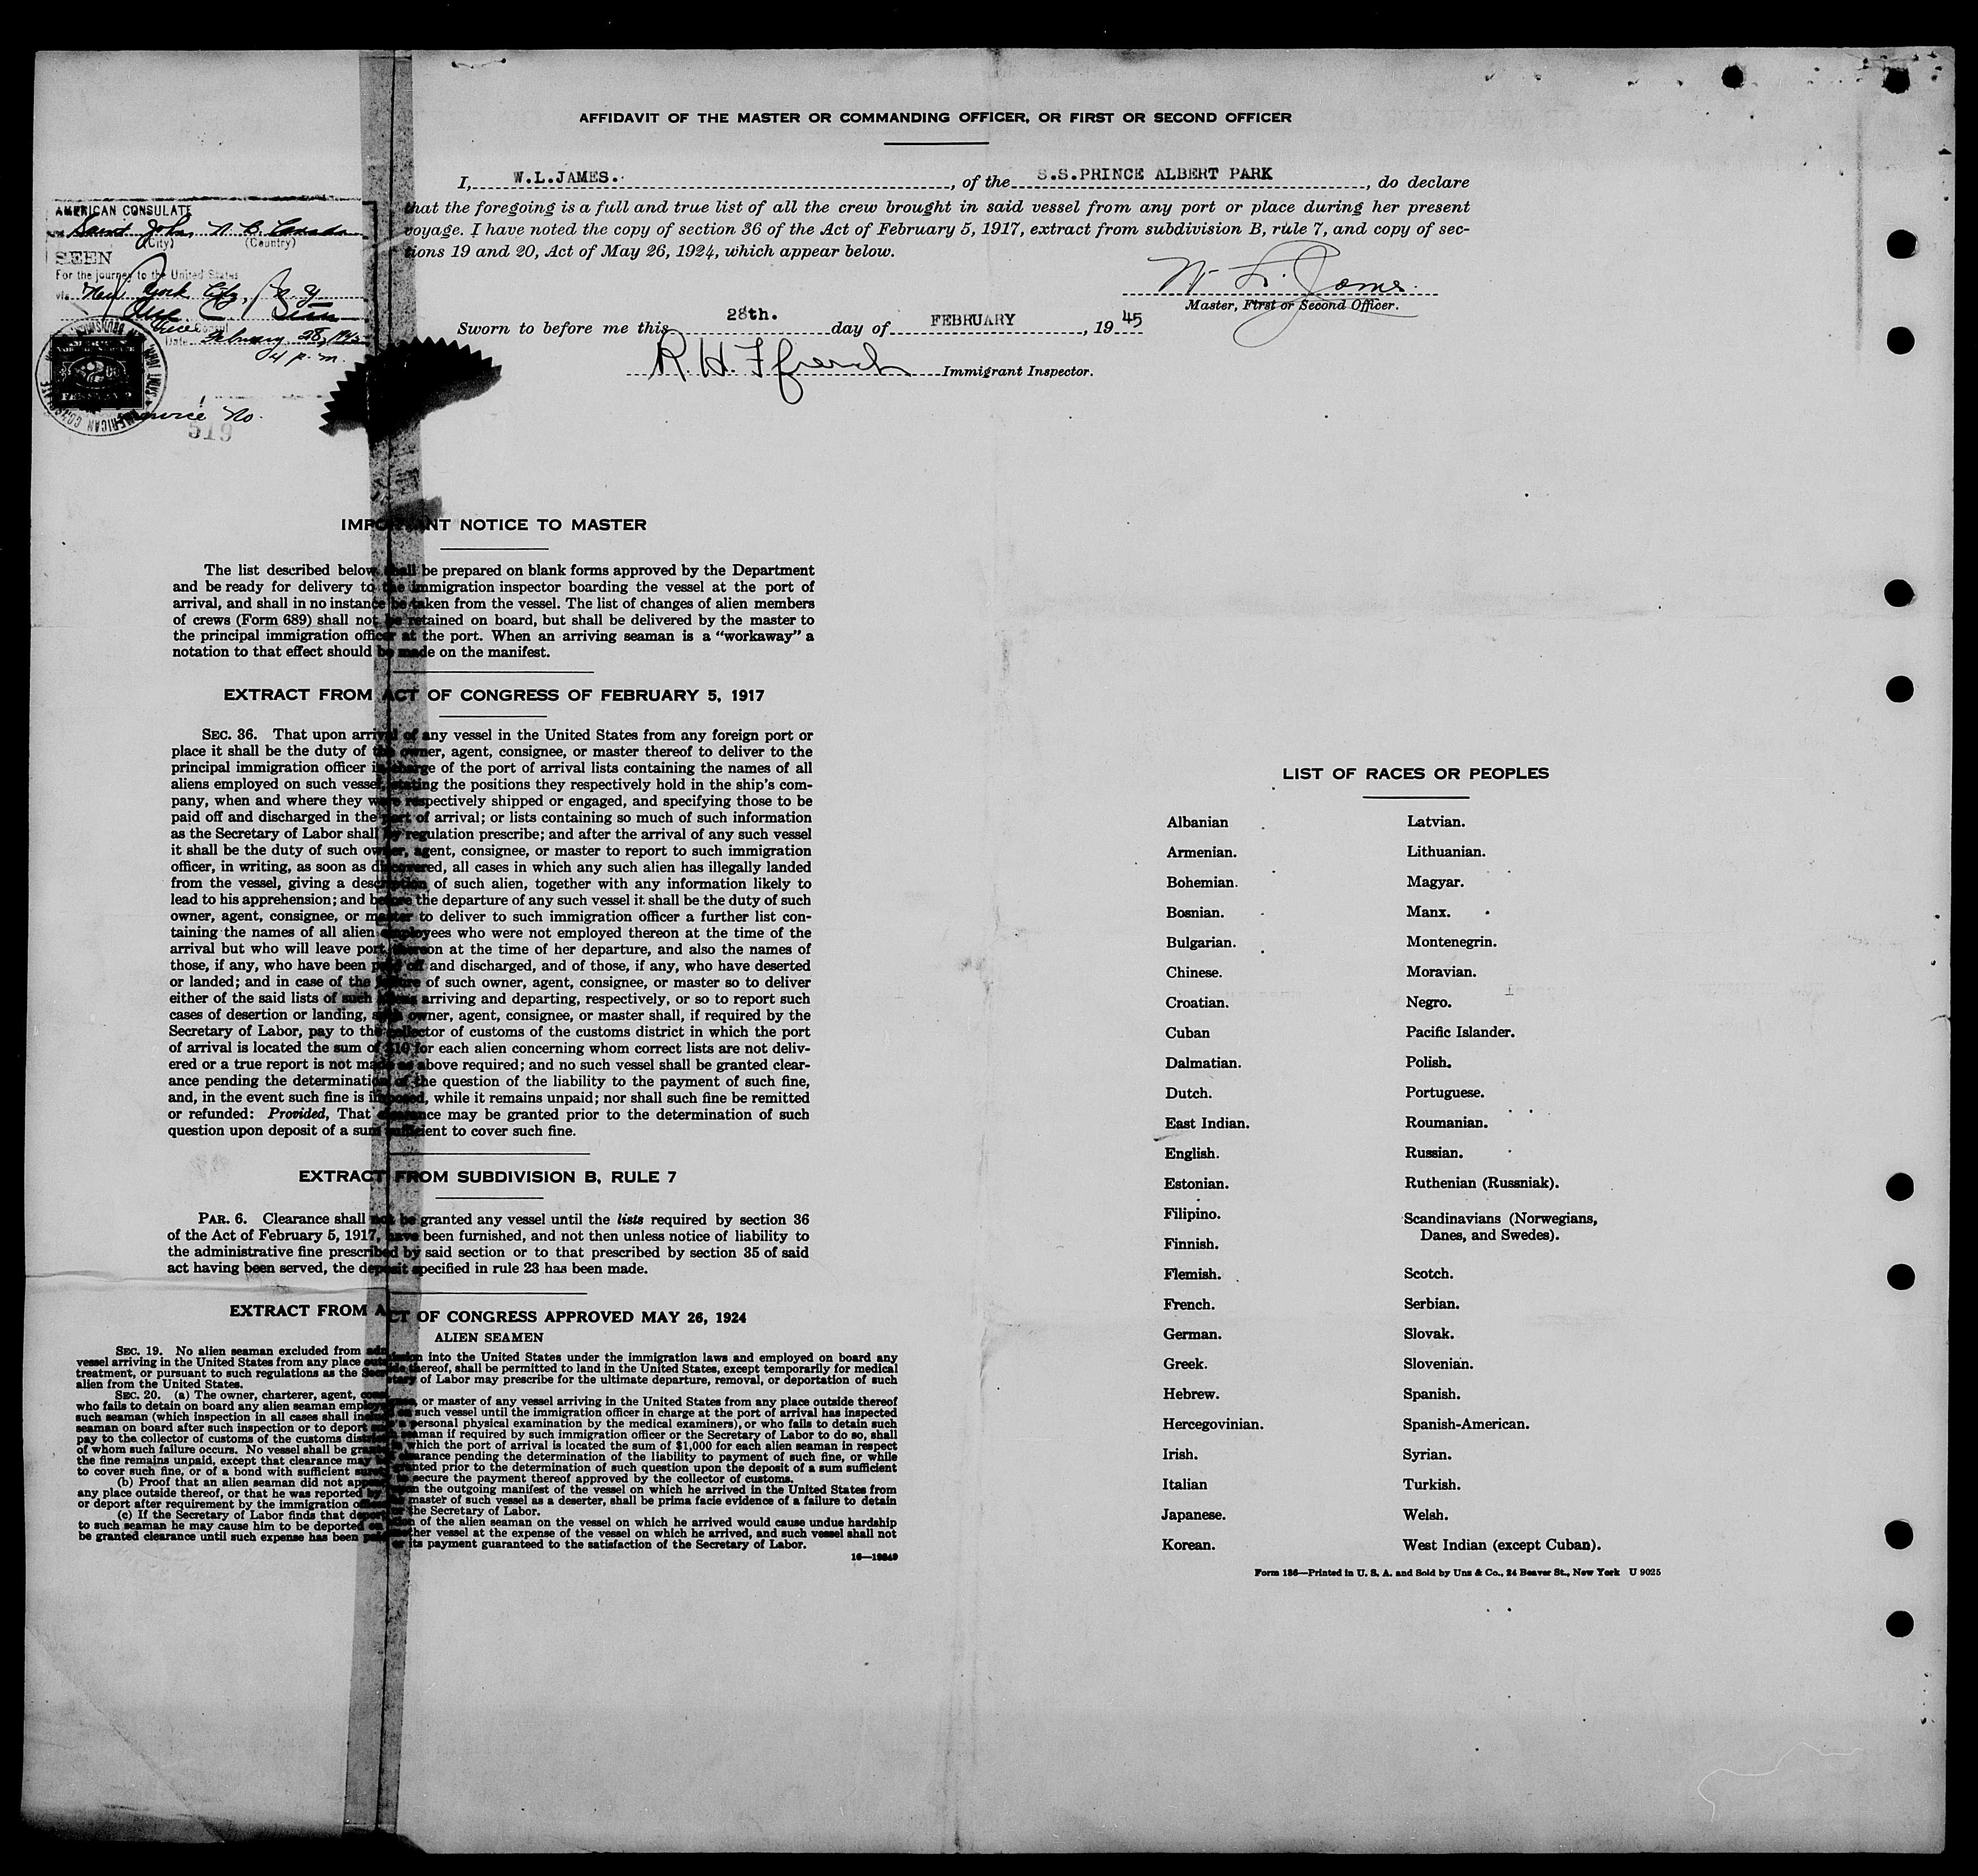 AFFIDAVIT OF THE MASTER OR COMMANDING OFFICER, OR FIRST OR SECOND OFFICER
I, W.L.JAMES. , of the S.S.PRINCE ALBERT PARK , do declare
that the foregoing is a full and true list of all the crew brought in said vessel from any port or place during her present
voyage. I have noted the copy of section 36 of the Act of February 5, 1917, extract from subdivision B, rule 7, and copy of sec-
tions 19 and 20, Act of May 26, 1924, which appear below.
W. L. James.
Master, First or Second Officer.
Sworn to before me this 28th. day of FEBRUARY , 19 45
R. H. Ffrench Immigrant Inspector.
AMERICAN CONSULATE
Saint John, N. B. Canada
(City) (Country)
SEEN
For the journey to the United States
via New York City, N. Y.
Vice Consul
Date February 28, 1945
4 p. m.
Service No.
519
IMPORTANT NOTICE TO MASTER
The list described below shall be prepared on blank forms approved by the Department
and be ready for delivery to the immigration inspector boarding the vessel at the port of
arrival, and shall in no instance be taken from the vessel. The list of changes of alien members
of crews (Form 689) shall not be retained on board, but shall be delivered by the master to
the principal immigration officer at the port. When an arriving seaman is a "workaway" a
notation to that effect should be made on the manifest.
EXTRACT FROM ACT OF CONGRESS OF FEBRUARY 5, 1917
SEC. 36. That upon arrival of any vessel in the United States from any foreign port or
place it shall be the duty of the owner, agent, consignee, or master thereof to deliver to the
principal immigration officer in charge of the port of arrival lists containing the names of all
aliens employed on such vessel, stating the positions they respectively hold in the ship's com-
pany, when and where they were respectively shipped or engaged, and specifying those to be
paid off and discharged in the port of arrival; or lists containing so much of such information
as the Secretary of Labor shall by regulation prescribe; and after the arrival of any such vessel
it shall be the duty of such owner, agent, consignee, or master to report to such immigration
officer, in writing, as soon as discovered, all cases in which any such alien has illegally landed
from the vessel, giving a description of such alien, together with any information likely to
lead to his apprehension; and before the departure of any such vessel it shall be the duty of such
owner, agent, consignee, or master to deliver to such immigration officer a further list con-
taining the names of all alien employees who were not employed thereon at the time of the
arrival but who will leave port thereon at the time of her departure, and also the names of
those, if any, who have been paid off and discharged, and of those, if any, who have deserted
or landed; and in case of the failure of such owner, agent, consignee, or master so to deliver
either of the said lists of such aliens arriving and departing, respectively, or so to report such
cases of desertion or landing, such owner, agent, consignee, or master shall, if required by the
Secretary of Labor, pay to the collector of customs of the customs district in which the port
of arrival is located the sum of $10 for each alien concerning whom correct lists are not deliv-
ered or a true report is not made as above required; and no such vessel shall be granted clear-
ance pending the determination of the question of the liability to the payment of such fine,
and, in the event such fine is imposed, while it remains unpaid; nor shall such fine be remitted
or refunded: Provided, That clearance may be granted prior to the determination of such
question upon deposit of a sum sufficient to cover such fine.
EXTRACT FROM SUBDIVISION B, RULE 7
PAR. 6. Clearance shall not be granted any vessel until the lists required by section 36
of the Act of February 5, 1917, have been furnished, and not then unless notice of liability to
the administrative fine prescribed by said section or to that prescribed by section 35 of said
act having been served, the deposit specified in rule 23 has been made.
EXTRACT FROM ACT OF CONGRESS APPROVED MAY 26, 1924
ALIEN SEAMEN
SEC. 19. No alien seaman excluded from admission into the United States under the immigration laws and employed on board any
vessel arriving in the United States from any place outside thereof, shall be permitted to land in the United States, except temporarily for medical
treatment, or pursuant to such regulations as the Secretary of Labor may prescribe for the ultimate departure, removal, or deportation of such
alien from the United States.
SEC. 20. (a) The owner, charterer, agent, consignee, or master of any vessel arriving in the United States from any place outside thereof
who fails to detain on board any alien seaman employed on such vessel until the immigration officer in charge at the port of arrival has inspected
such seaman (which inspection in all cases shall include a personal physical examination by the medical examiners), or who fails to detain such
seaman on board after such inspection or to deport such seaman if required by such immigration officer or the Secretary of Labor to do so, shall
pay to the collector of customs of the customs district in which the port of arrival is located the sum of $1,000 for each alien seaman in respect
of whom such failure occurs. No vessel shall be granted clearance pending the determination of the liability to payment of such fine, or while
the fine remains unpaid, except that clearance may be granted prior to the determination of such question upon the deposit of a sum sufficient
to cover such fine, or of a bond with sufficient surety to secure the payment thereof approved by the collector of customs.
(b) Proof that an alien seaman did not appear upon the outgoing manifest of the vessel on which he arrived in the United States from
any place outside thereof, or that he was reported by the master of such vessel as a deserter, shall be prima facie evidence of a failure to detain
or deport after requirement by the immigration officer or the Secretary of Labor.
(c) If the Secretary of Labor finds that deportation of the alien seaman on the vessel on which he arrived would cause undue hardship
to such seaman he may cause him to be deported on another vessel at the expense of the vessel on which he arrived, and such vessel shall not
be granted clearance until such expense has been paid or its payment guaranteed to the satisfaction of the Secretary of Labor.
16—19849
LIST OF RACES OR PEOPLES
Albanian
Armenian.
Bohemian.
Bosnian.
Bulgarian.
Chinese.
Croatian.
Cuban
Dalmatian.
Dutch.
East Indian.
English.
Estonian.
Filipino.
Finnish.
Flemish.
French.
German.
Greek.
Hebrew.
Hercegovinian.
Irish.
Italian
Japanese.
Korean.
Latvian.
Lithuanian.
Magyar.
Manx.
Montenegrin.
Moravian.
Negro.
Pacific Islander.
Polish.
Portuguese.
Roumanian.
Russian.
Ruthenian (Russniak).
Scandinavians (Norwegians,
Danes, and Swedes).
Scotch.
Serbian.
Slovak.
Slovenian.
Spanish.
Spanish-American.
Syrian.
Turkish.
Welsh.
West Indian (except Cuban).
Form 186—Printed in U. S. A. and Sold by Unz & Co., 24 Beaver St., New York U 9025